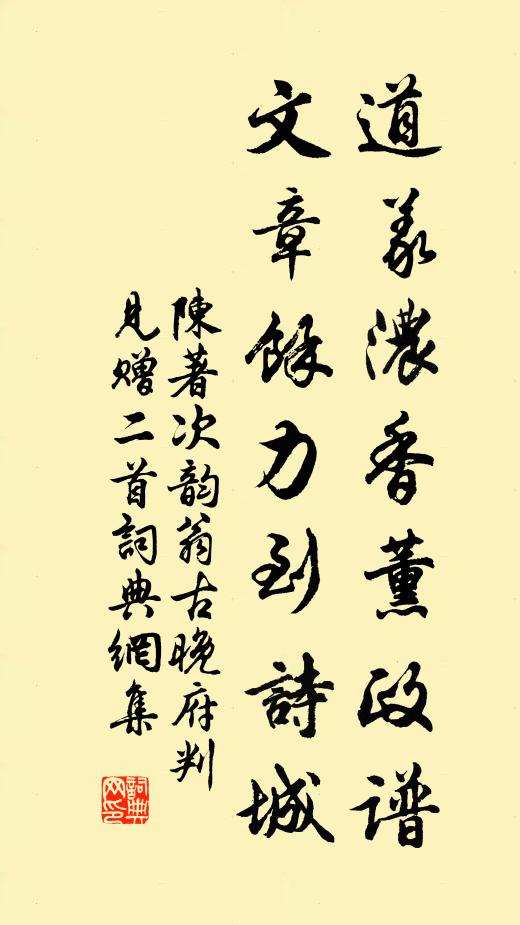 道义濃香薰政谱
文章餘力到詩城
陳著次韵翁古晚府判
見贈二首詞典網集
詞典
网印